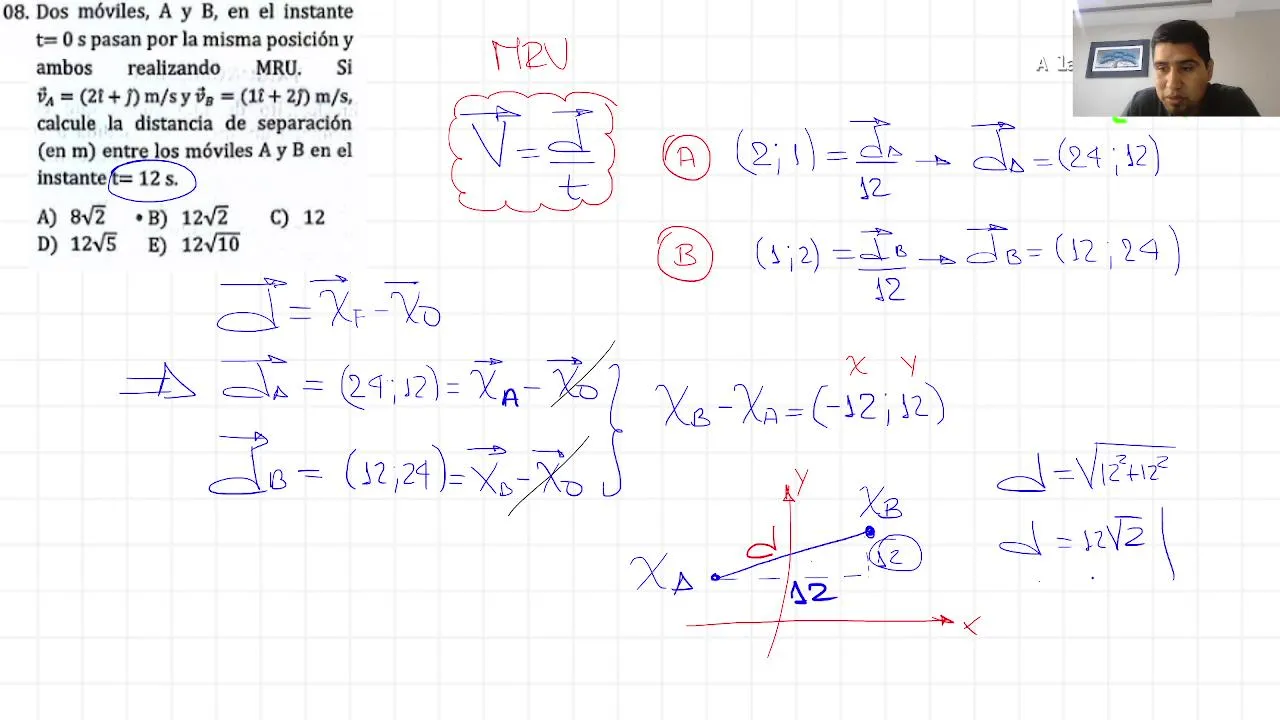 08. Dos móviles, A y B, en el instante
t= 0 s pasan por la misma posición y
ambos realizando MRU. Si
v⃗_A = (2î + ĵ) m/s y v⃗_B = (1î + 2ĵ) m/s,
calcule la distancia de separación
(en m) entre los móviles A y B en el
instante t= 12 s.
A) 8√2 • B) 12√2 C) 12
D) 12√5 E) 12√10
MRU
V⃗ = d⃗/t
A la
A (2;1) = d⃗_A/12 → d⃗_A = (24;12)
B (1;2) = d⃗_B/12 → d⃗_B = (12;24)
d⃗ = X⃗_F − X⃗_0
⇒ d⃗_A = (24;12) = X⃗_A − X⃗_0
d⃗_B = (12;24) = X⃗_B − X⃗_0
X Y
X_B − X_A = (−12;12)
Y
X_B
d
12
X_A
12
X
d = √12²+12²
d = 12√2